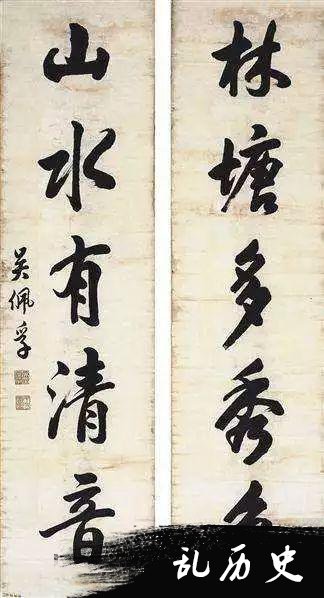 林塘多秀
山水有清音
吴佩孚
乱历史